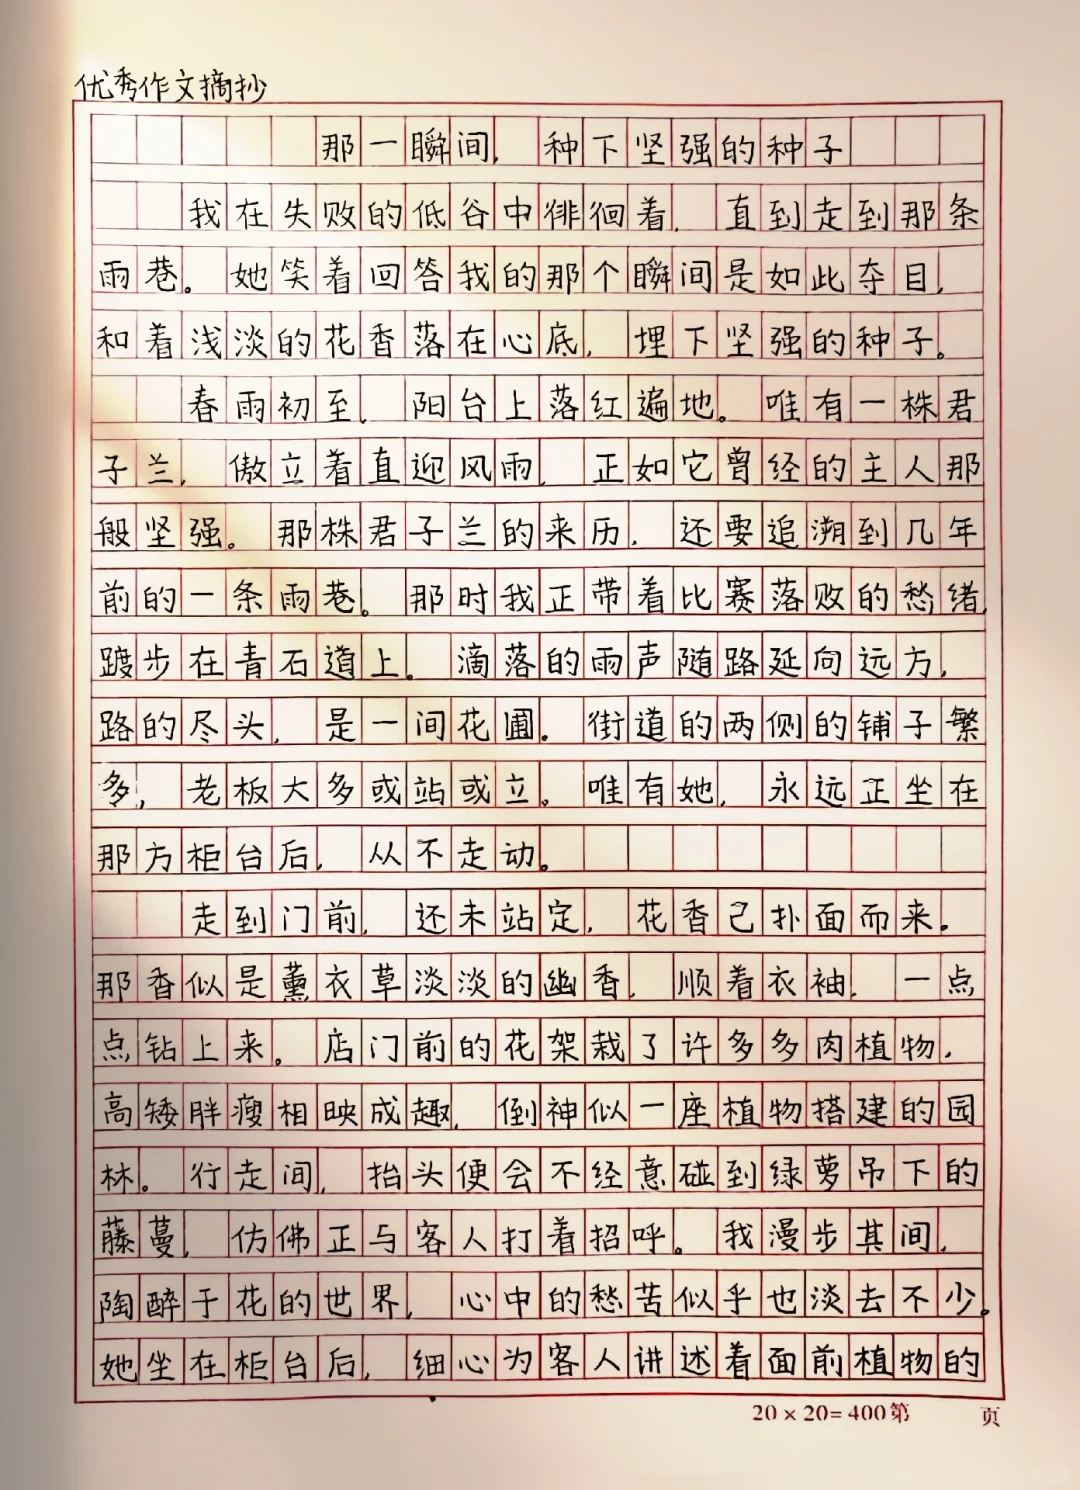 优秀作文摘抄
那一瞬间，种下坚强的种子
我在失败的低谷中徘徊着，直到走到那条
雨巷。她笑着回答我的那个瞬间是如此夺目，
和着浅淡的花香落在心底，埋下坚强的种子。
春雨初至，阳台上落红遍地。唯有一株君
子兰，傲立着直迎风雨，正如它曾经的主人那
般坚强。那株君子兰的来历，还要追溯到几年
前的一条雨巷。那时我正带着比赛落败的愁绪，
踱步在青石道上。滴落的雨声随路延向远方，
路的尽头，是一间花圃。街道的两侧的铺子繁
多，老板大多或站或立。唯有她，永远正坐在
那方柜台后，从不走动。
走到门前，还未站定，花香已扑面而来。
那香似是薰衣草淡淡的幽香，顺着衣袖，一点
点钻上来。店门前的花架栽了许多多肉植物，
高矮胖瘦相映成趣，倒神似一座植物搭建的园
林。行走间，抬头便会不经意碰到绿萝吊下的
藤蔓，仿佛正与客人打着招呼。我漫步其间，
陶醉于花的世界，心中的愁苦似乎也淡去不少。
她坐在柜台后，细心为客人讲述着面前植物的
20×20=400第 页